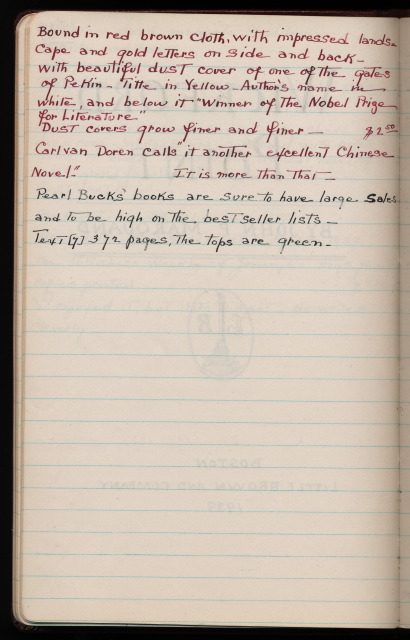 Bound in red brown cloth, with impressed lands-
cape and gold letters on side and back-
with beautiful dust cover of one of the gates
of Pekin- Title in Yellow- Author's name in
white, and below it "Winner of the Nobel Prize
for Literature"
Dust covers grow finer and finer- $2.50
Carl van Doren calls "it another excellent Chinese
Novel-" It is more than that-
Pearl Bucks' books are sure to have large sales
and to be high on the best seller lists-
Text [7] 372 pages, the tops are green-
BOSTON
LITTLE BROWN AND COMPANY
1939